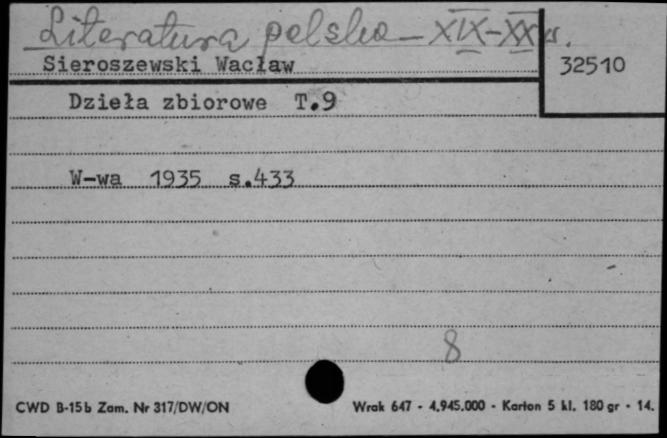 Literatura polska - XIX-XX w.
Sieroszewski Wacław
32510
Dzieła zbiorowe T.9
W-wa 1935 s.433
8
CWD B-15b Zam. Nr 317/DW/ON
Wrak 647 - 4.945.000 - Karton 5 kl. 180 gr - 14.